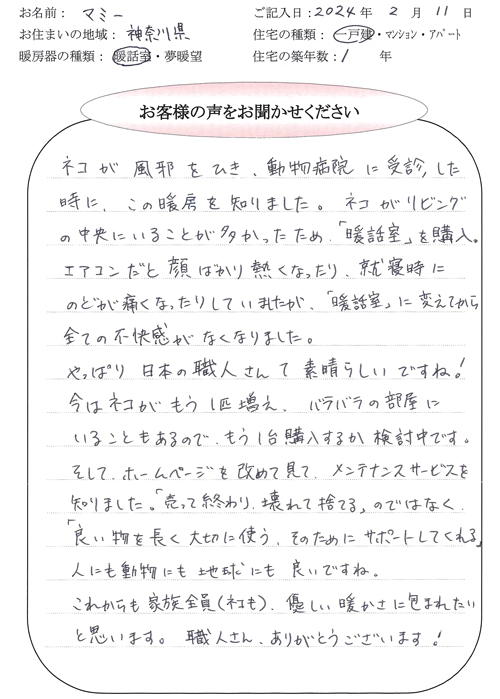 お名前： マミー　ご記入日：2024年 2月 11日
お住まいの地域： 神奈川県　住宅の種類： 一戸建・マンション・アパート
暖房器の種類： 暖話室・夢暖望　住宅の築年数： 1 年
お客様の声をお聞かせください
ネコが 風邪をひき、動物病院に受診した
時に、この暖房を知りました。ネコがリビング
の中央にいることが多かったため、「暖話室」を購入。
エアコンだと顔ばかり熱くなったり、就寝時に
のどが痛くなったりしていましたが、「暖話室」に変えてから
全ての不快感がなくなりました。
やっぱり日本の職人さんて素晴らしいですね！
今はネコがもう1匹増え、バラバラの部屋に
いることもあるので、もう1台購入するか検討中です。
そして、ホームページを改めて見て、メンテナンスサービスを
知りました。「売って終わり、壊れて捨てる」のではなく、
「良い物を長く大切に使う、そのためにサポートしてくれる」
人にも動物にも地球にも良いですね。
これからも家族全員（ネコも）、優しい暖かさに包まれたい
と思います。職人さん、ありがとうございます！